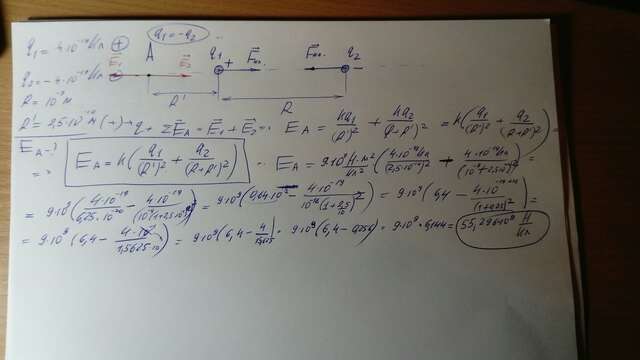 q₁ = 4·10⁻¹⁹ Кл ⊕ A q₁ = -q₂
q₂ = -4·10⁻¹⁹ Кл E⃗₁ E⃗₂ q₁ + F⃗ F⃗ q₂ -
R = 10⁻⁹ м R' R
R' = 2,5·10⁻¹⁰ м (+) → q₊ ΣE⃗_A = E⃗₁ + E⃗₂ E_A = kq₁/(R')² + kq₂/(R+R')² = k(q₁/(R')² + q₂/(R+R')²) =
E_A -?
=> E_A = k(q₁/(R')² + q₂/(R+R')²) E_A = 9·10⁹ Н·м²/Кл² (4·10⁻¹⁹ Кл/(2,5·10⁻¹⁰)² - 4·10⁻¹⁹ Кл/(10⁻⁹+2,5·10⁻¹⁰)²) =
= 9·10⁹ (4·10⁻¹⁹/6,25·10⁻²⁰ - 4·10⁻¹⁹) = 9·10⁹ (- 4·10⁻¹⁹) = 9·10⁹ (6,4 - 4·10 /(1+0,25)²) =
= 9·10⁹ (6,4 - 4·10/1,5625·10) = 9·10⁹ (6,4 - 4/1,5625) = 9·10⁹ (6,4 - 0,256) = 9·10⁹ · 6,144 = 55,296·10⁹ Н/Кл